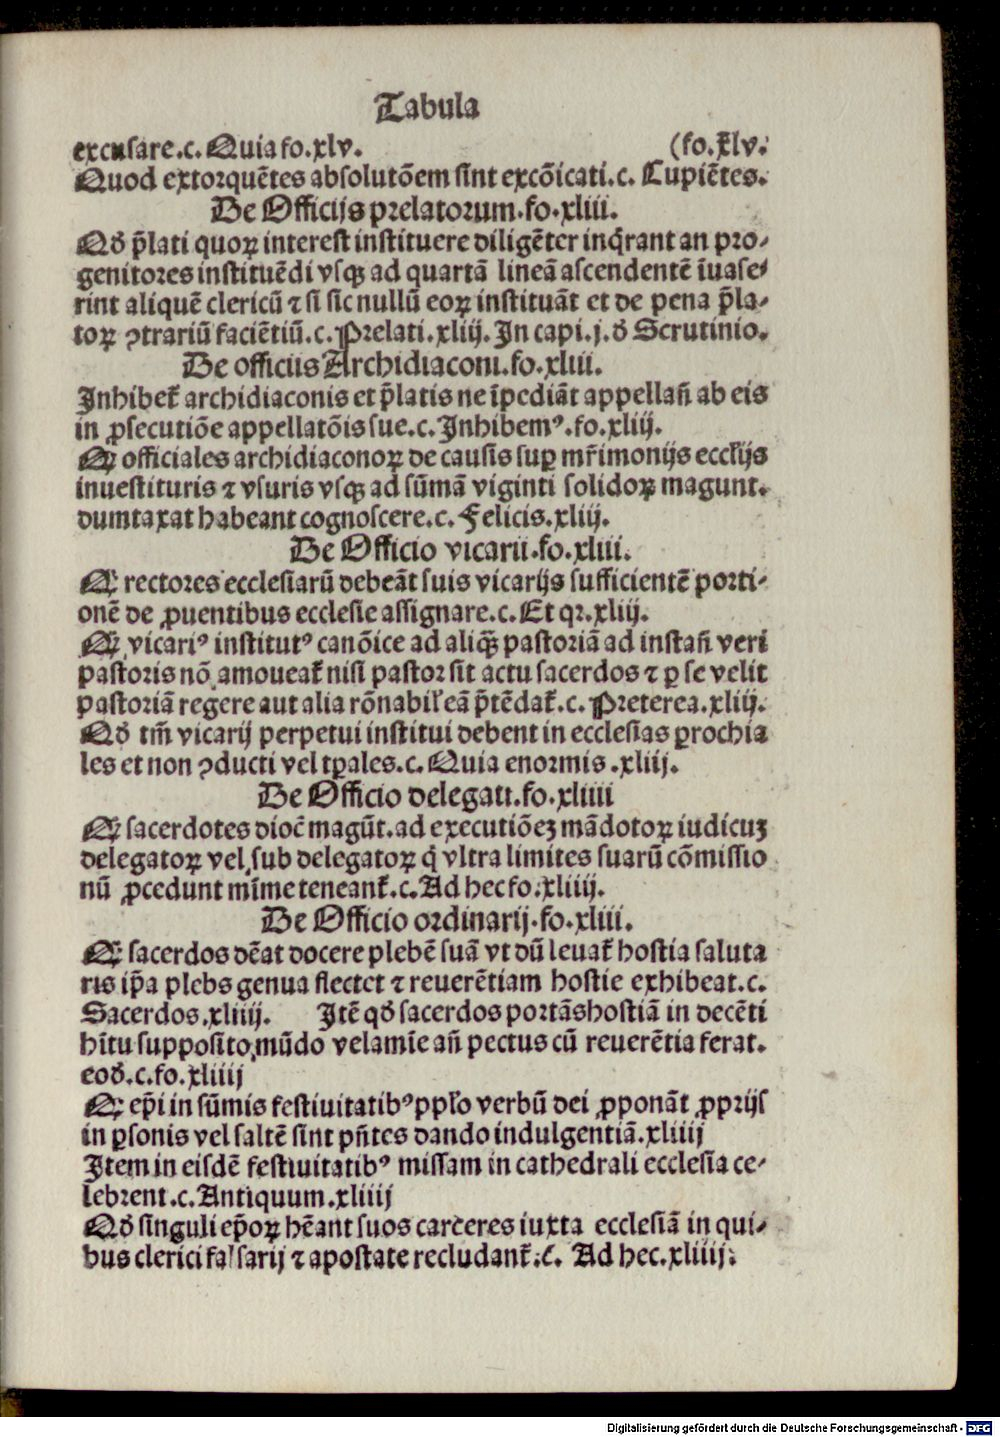 Tabula
excusare.c. Quia fo.xlv. (fo.xlv.
Quod extorquẽtes absolutõem sint excõicati.c. Cupiẽtes.
De Officijs prelatorum.fo.xliii.
Qꝺ p̄lati quoꝝ interest instituere diligẽter inq̄rant an pro⸗
genitores instituẽdi vsqꝫ ad quartã lineã ascendentẽ ĩuase⸗
rint aliquẽ clericũ ⁊ si sic nullũ eoꝝ instituãt et de pena p̄la⸗
toꝝ ꝯtrariũ faciẽtiũ.c. Prelati.xliij. In capi.j.ꝺ Scrutinio.
De officiis Archidiaconi.fo.xliii.
Inhibet᷑ archidiaconis et p̄latis ne ĩpediãt appellañ ab eis
in ꝓsecutiõe appellatõis sue.c. Inhibemꝰ.fo.xliij.
Q officiales archidiaconoꝝ de causis suꝑ mr̃imonijs eccl̃ijs
inuestituris ⁊ vsuris vsqꝫ ad sũmã viginti solidoꝝ magunt.
dumtaxat habeant cognoscere.c. Felicis.xliij.
De Officio vicarii.fo.xliii.
Q rectores ecclesiarũ debeãt suis vicarijs sufficientẽ porti⸗
onẽ de ꝓuentibus ecclesie assignare.c. Et qr.xliij.
Q vicariꝰ institutꝰ canõice ad aliqꝫ pastoriã ad instañ veri
pastoris nõ amoueat᷑ nisi pastor sit actu sacerdos ⁊ ꝑ se velit
pastoriã regere aut alia rõnabil̓ eã p̄tẽdat᷑.c. Preterea.xliij.
Qꝺ tm̃ vicarij perpetui institui debent in ecclesias ꝑrochia
les et non ꝯducti vel tꝑales.c. Quia enormis.xliij.
De Officio delegati.fo.xliiii
Q sacerdotes dioc̃ magũt.ad executiõeꝫ mãdotoꝝ iudicuꝫ
delegatoꝝ vel sub delegatoꝝ q̇ vltra limites suarũ cõmissio
nũ ꝓcedunt mĩme teneant᷑.c. Ad hec fo.xliiij.
De Officio ordinarij.fo.xliii.
Q sacerdos dẽat docere plebẽ suã vt dũ leuat᷑ hostia saluta
ris ip̃a plebs genua flectet ⁊ reuerẽtiam hostie exhibeat.c.
Sacerdos.xliiij. Itẽ qꝺ sacerdos portãs hostiã in decẽti
hĩtu supposito mũdo velamĩe añ pectus cũ reuerẽtia ferat.
eoꝺ.c.fo.xliiij
Q ep̃i in sũmis festiuitatibꝰ ppl̓o verbũ dei ꝓponãt ꝓprijs
in ꝑsonis vel saltẽ sint pñtes dando indulgentiã.xliiij
Item in eisdẽ festiuitatibꝰ missam in cathedrali ecclesia ce⸗
lebrent.c. Antiquum.xliiij
Qꝺ singuli ep̃oꝝ hẽant suos carceres iuxta ecclesiã in qui⸗
bus clerici falsarij ⁊ apostate recludant᷑.c. Ad hec.xliiij.
Digitalisierung gefördert durch die Deutsche Forschungsgemeinschaft - DFG